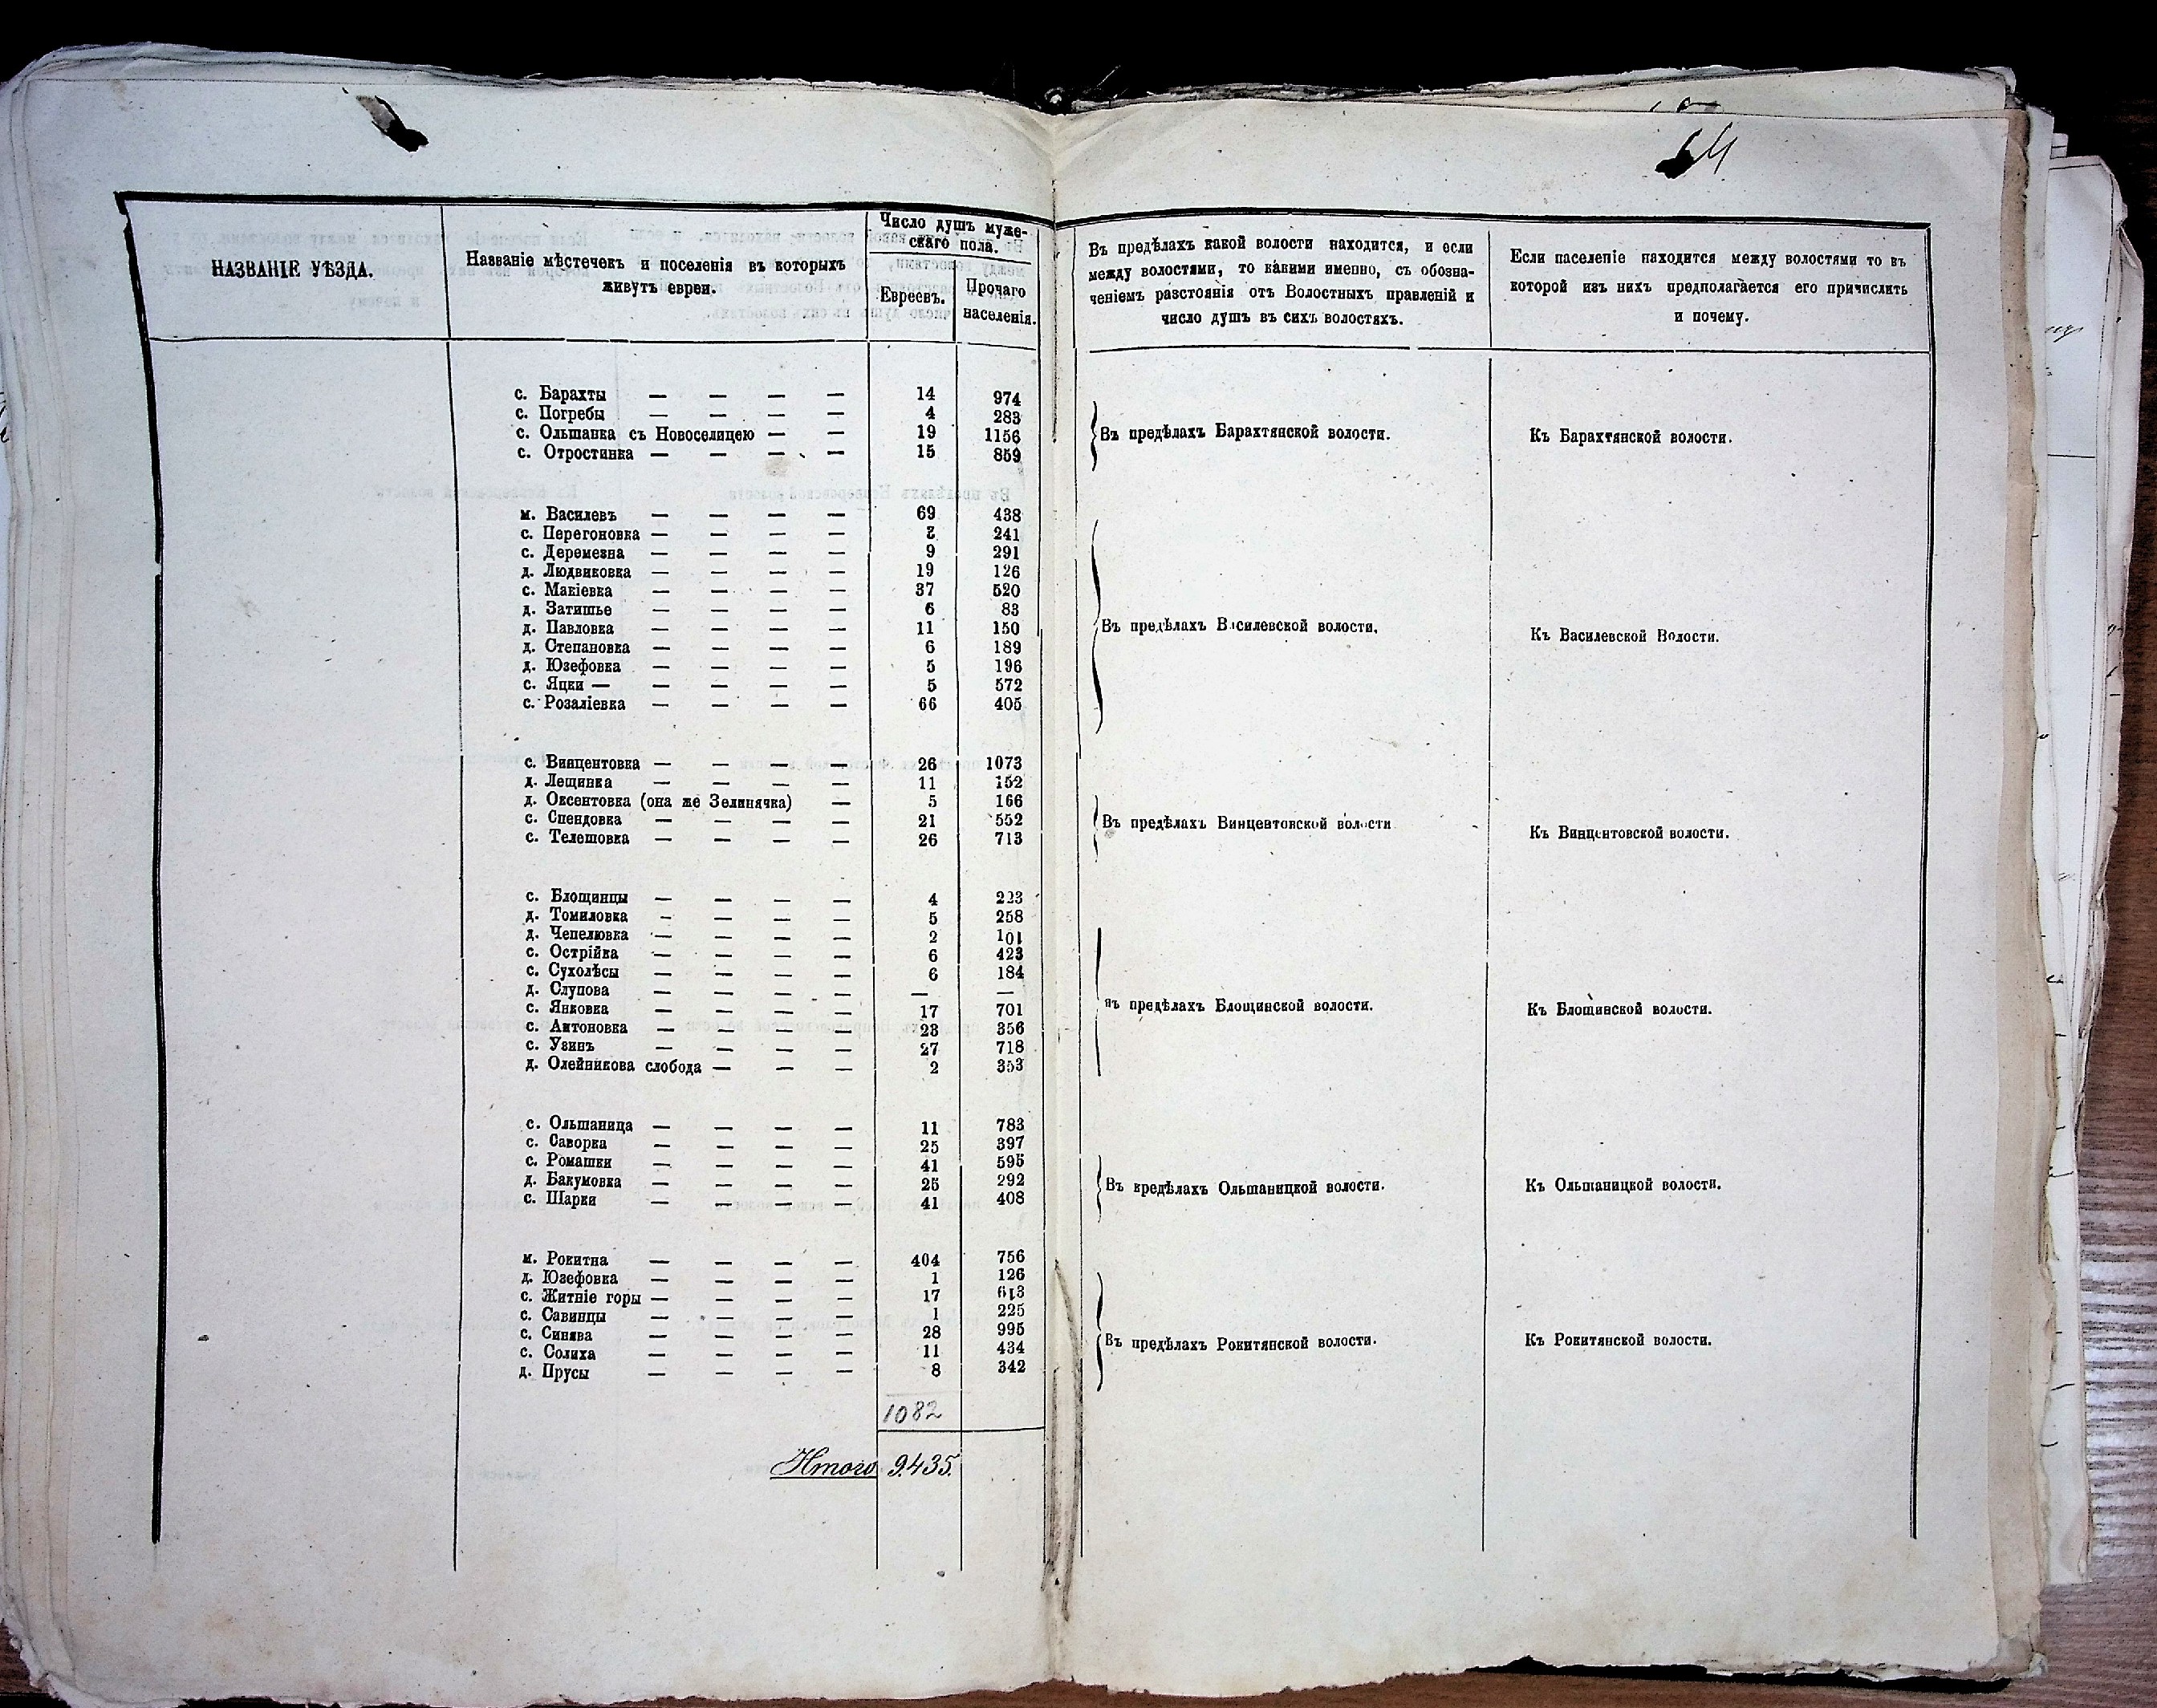 64
НАЗВАНІЕ УѢЗДА.
Названіе мѣстечекъ и поселенія въ которыхъ
живутъ евреи.
Число душъ муже-
скаго пола.
Евреевъ.
Прочаго
населенія.
Въ предѣлахъ какой волости находится, и если
между волостями, то какими именно, съ обозна-
ченіемъ разстоянія отъ Волостныхъ правленій и
число душъ въ сихъ волостяхъ.
Если населеніе находится между волостями то въ
которой изъ нихъ предполагается его причислить
и почему.
с. Барахты — — — — 14 974
с. Погребы — — — — 4 283
с. Ольшанка съ Новоселицею — — 19 1156
с. Отростинка — — — — 15 859
Въ предѣлахъ Барахтянской волости. Къ Барахтянской волости.
м. Василевъ — — — — 69 438
с. Перегоновка — — — — 241
с. Деремезна — — — — 9 291
д. Людвиковка — — — — 19 126
с. Макіевка — — — — 37 520
д. Затишье — — — — 6 83
д. Павловка — — — — 11 150
д. Степановка — — — — 6 189
д. Юзефовка — — — — 5 196
с. Яцки — — — — — 5 572
с. Розаліевка — — — — 66 405
Въ предѣлахъ Василевской волости. Къ Василевской Волости.
с. Винцентовка — — — — 26 1073
д. Лещинка — — — — 11 152
д. Оксентовка (она же Зелинячка) — 5 166
с. Спендовка — — — — 21 552
с. Телешовка — — — — 26 713
Въ предѣлахъ Винцентовской волости Къ Винцентовской волости.
с. Блощинцы — — — — 4 223
д. Томиловка — — — — 5 258
д. Чепелювка — — — — 2 101
с. Острійка — — — — 6 423
с. Сухолѣсы — — — — 6 184
д. Слупова — — — — — —
с. Янковка — — — — 17 701
с. Антоновка — — — — 23 356
с. Узинъ — — — — 27 718
д. Олейникова слобода — — — 2 353
въ предѣлахъ Блощинской волости. Къ Блощинской волости.
с. Ольшаница — — — — 11 783
с. Саворка — — — — 25 397
с. Ромашки — — — — 41 595
д. Бакумовка — — — — 25 292
с. Шарки — — — — 41 408
Въ кредѣлахъ Ольшаницкой волости. Къ Ольшаницкой волости.
м. Рокитна — — — — 404 756
д. Юзефовка — — — — 1 126
с. Житніе горы — — — — 17 613
с. Савинцы — — — — 1 225
с. Синява — — — — 28 995
с. Солиха — — — — 11 434
д. Прусы — — — — 8 342
Въ предѣлахъ Рокитянской волости. Къ Рокитянской волости.
1082
Итого 9.435.